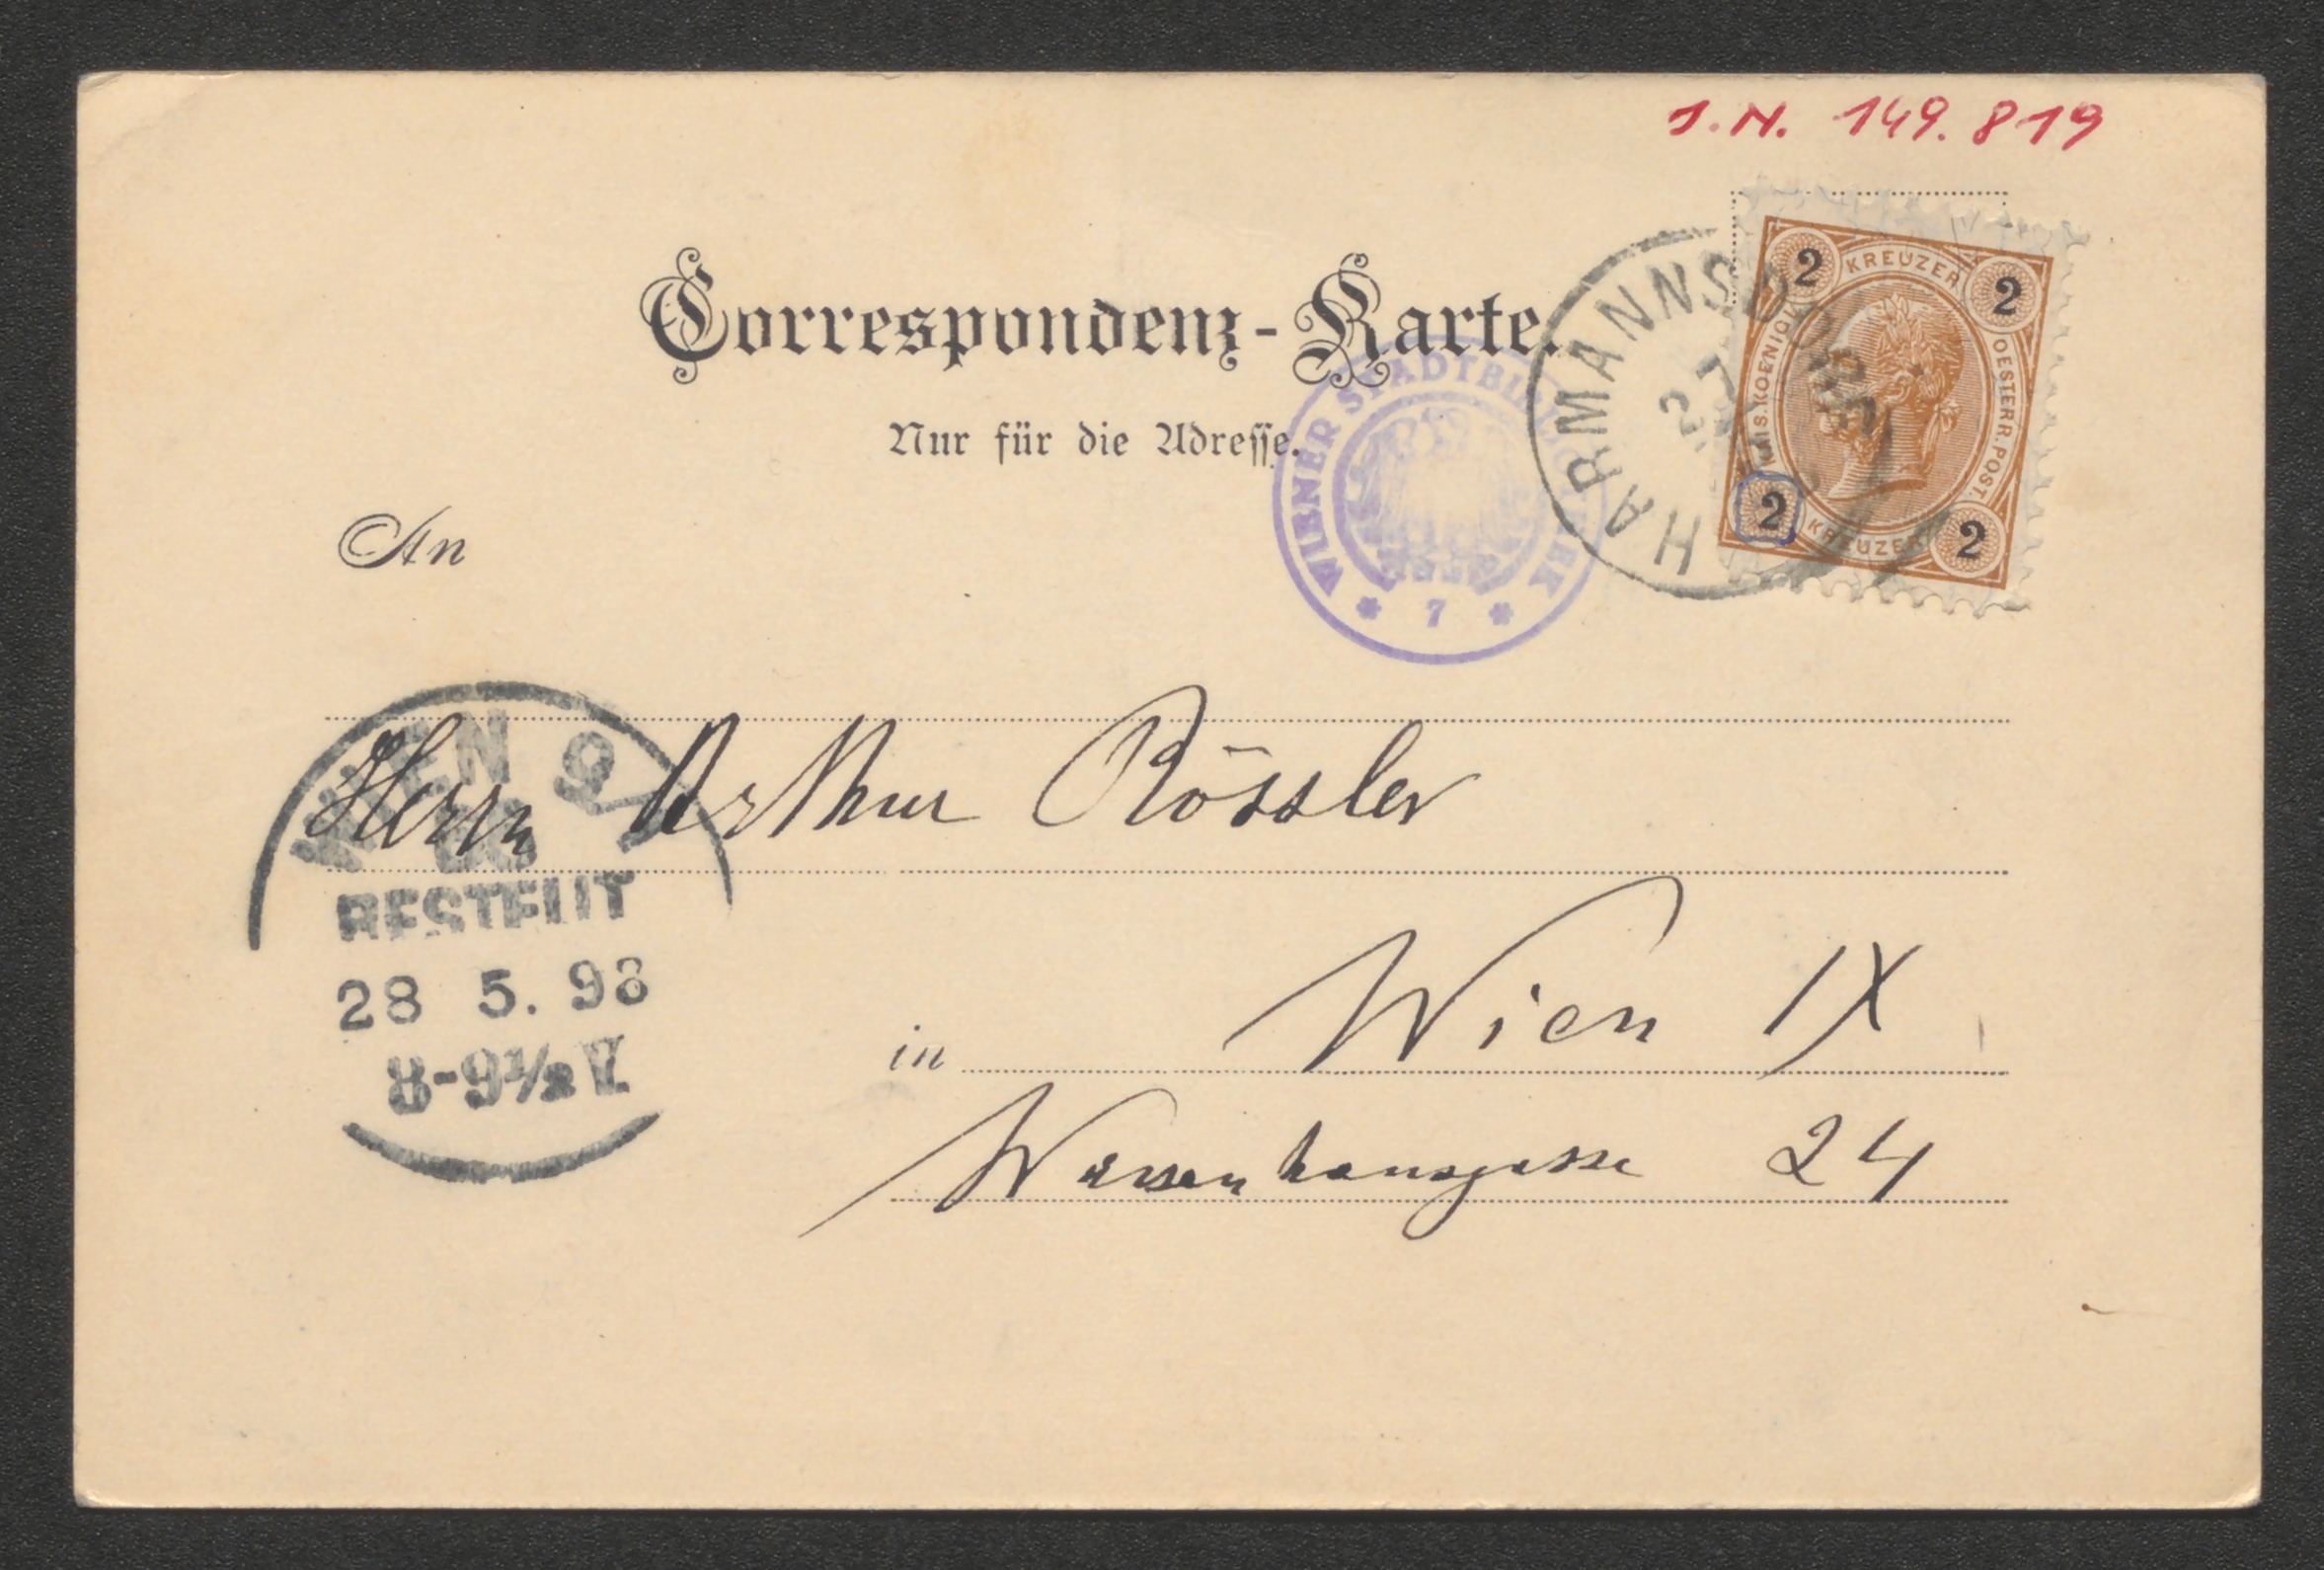 J.N. 149.819
Correspondenz-Karte.
Nur für die Adresse.
An
2 KREUZER 2
KAIS. KOENIGL. OESTERR. POST.
2 KREUZER 2
HARMANNSDORF
27
WIENER STADTBIBLIOTHEK
* 7 *
Herrn Arthur Rössler
in Wien IX
Waisenhausgasse 24
WIEN 9/1
BESTELLT
28 5. 98
8-9½ V